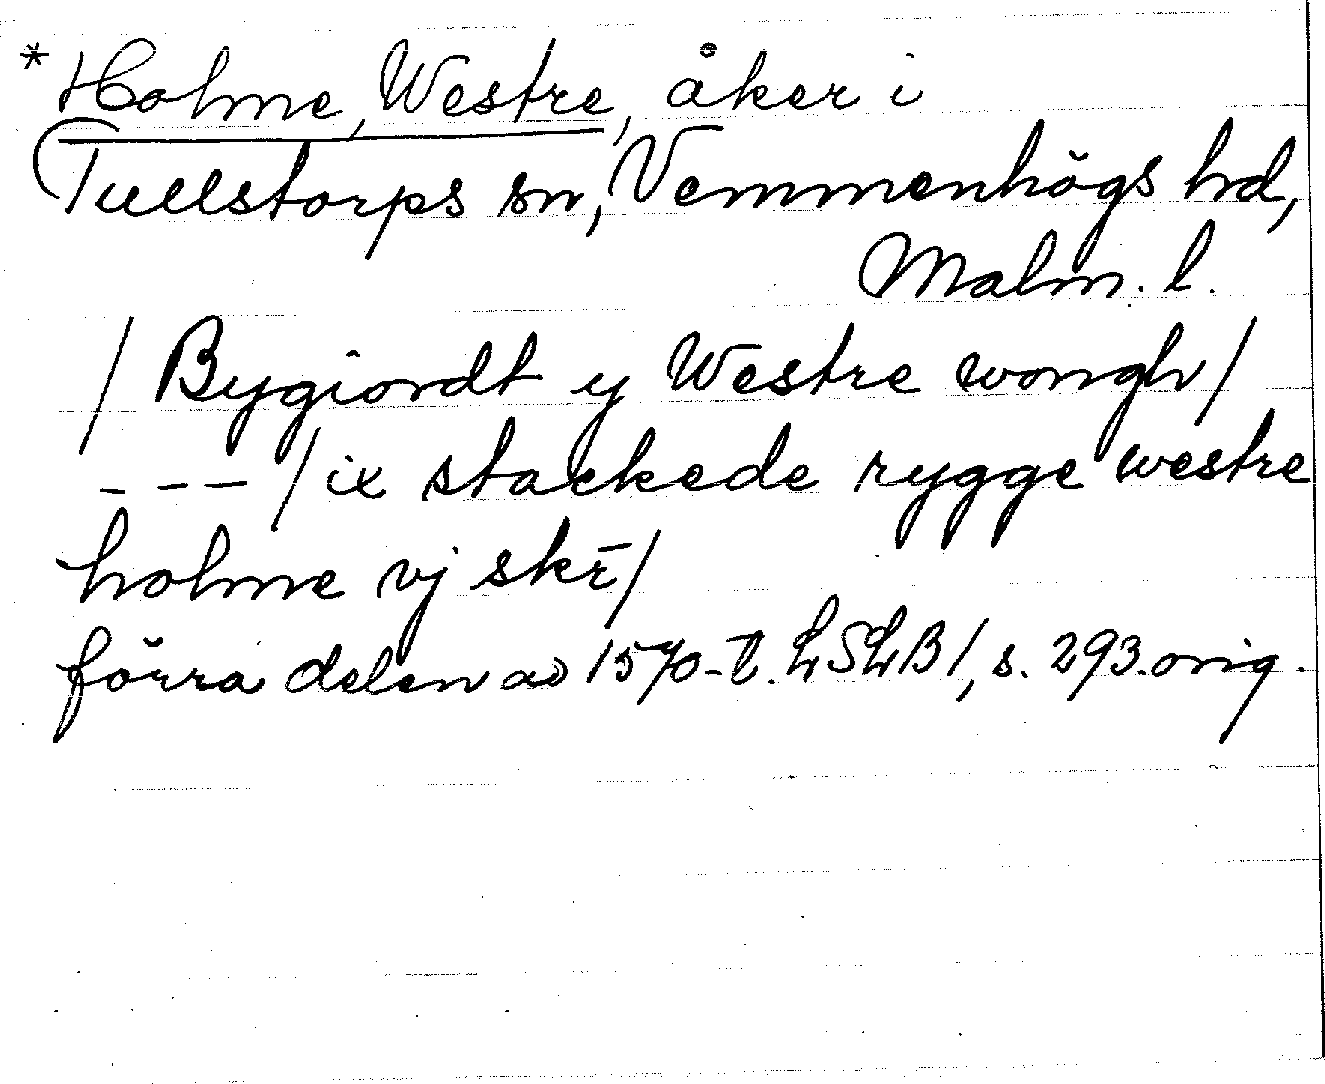 * Holme, Westre, åker i
Tullstorps sn, Vemmenhögs hd,
Malm. l.
/ Bygiordt y Westre wongh /
--- / ix stackede rygge westre
holme vj skē /
förra delen av 1570-t. LSLB 1, s. 293. orig.